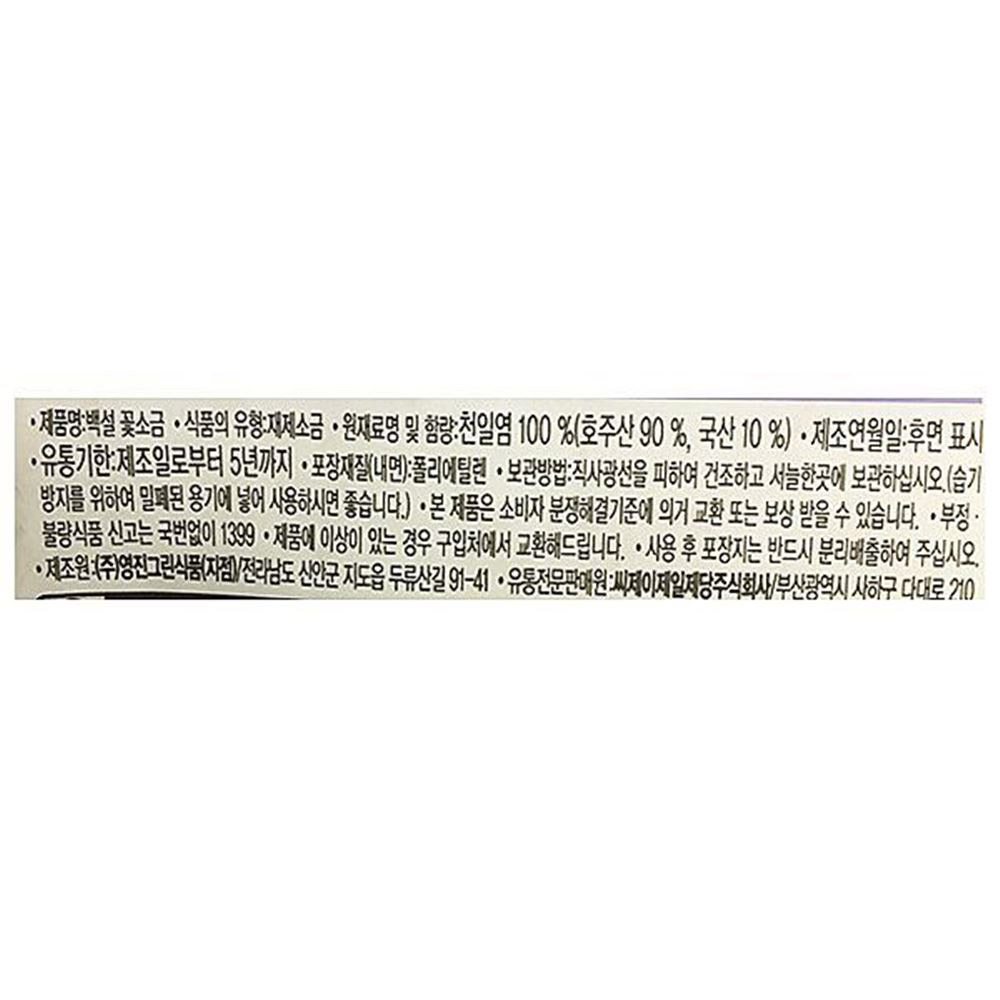 • 제품명:백설 꽃소금 • 식품의 유형:재제소금 • 원재료명 및 함량:천일염 100 %(호주산 90 %, 국산 10 %) • 제조연월일:후면 표시
• 유통기한:제조일로부터 5년까지 • 포장재질(내면):폴리에틸렌 • 보관방법:직사광선을 피하여 건조하고 서늘한곳에 보관하십시오.(습기
방지를 위하여 밀폐된 용기에 넣어 사용하시면 좋습니다.) • 본 제품은 소비자 분쟁해결기준에 의거 교환 또는 보상 받을 수 있습니다. • 부정·
불량식품 신고는 국번없이 1399 • 제품에 이상이 있는 경우 구입처에서 교환해드립니다. • 사용 후 포장지는 반드시 분리배출하여 주십시오.
• 제조원:(주)영진그린식품(지점)/전라남도 신안군 지도읍 두류산길 91-41 • 유통전문판매원:씨제이제일제당주식회사/부산광역시 사하구 다대로 210